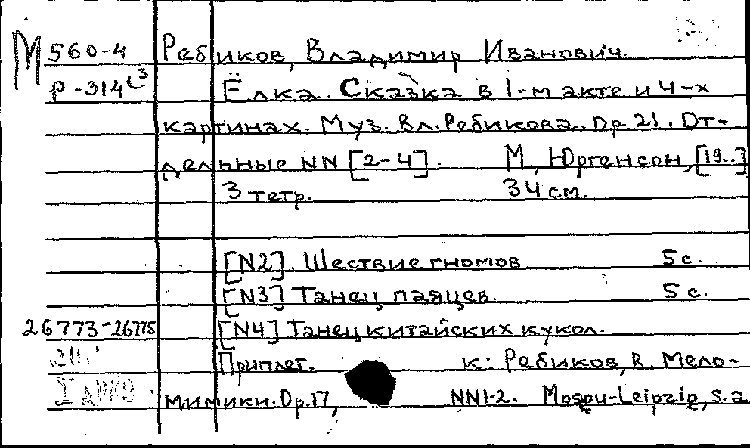 М 560-4 Ребиков, Владимир Иванович.
Р-314 Ёлка. Сказка в 1-м акте и 4-х
картинах. Муз. Вл. Ребикова. Op. 21. От-
дельные NN [2-4]. М., Юргенсон, [19..]
3 тетр. 34 см.
[N2] Шествие гномов 5 с.
[N3] Танец паяцев. 5 с.
26773-26775 [N4] Танец китайских кукол.
Приплет. к: Ребиков, В. Мело-
мимики. Op. 17, NN1-2. Moscou-Leipzig, s.a.